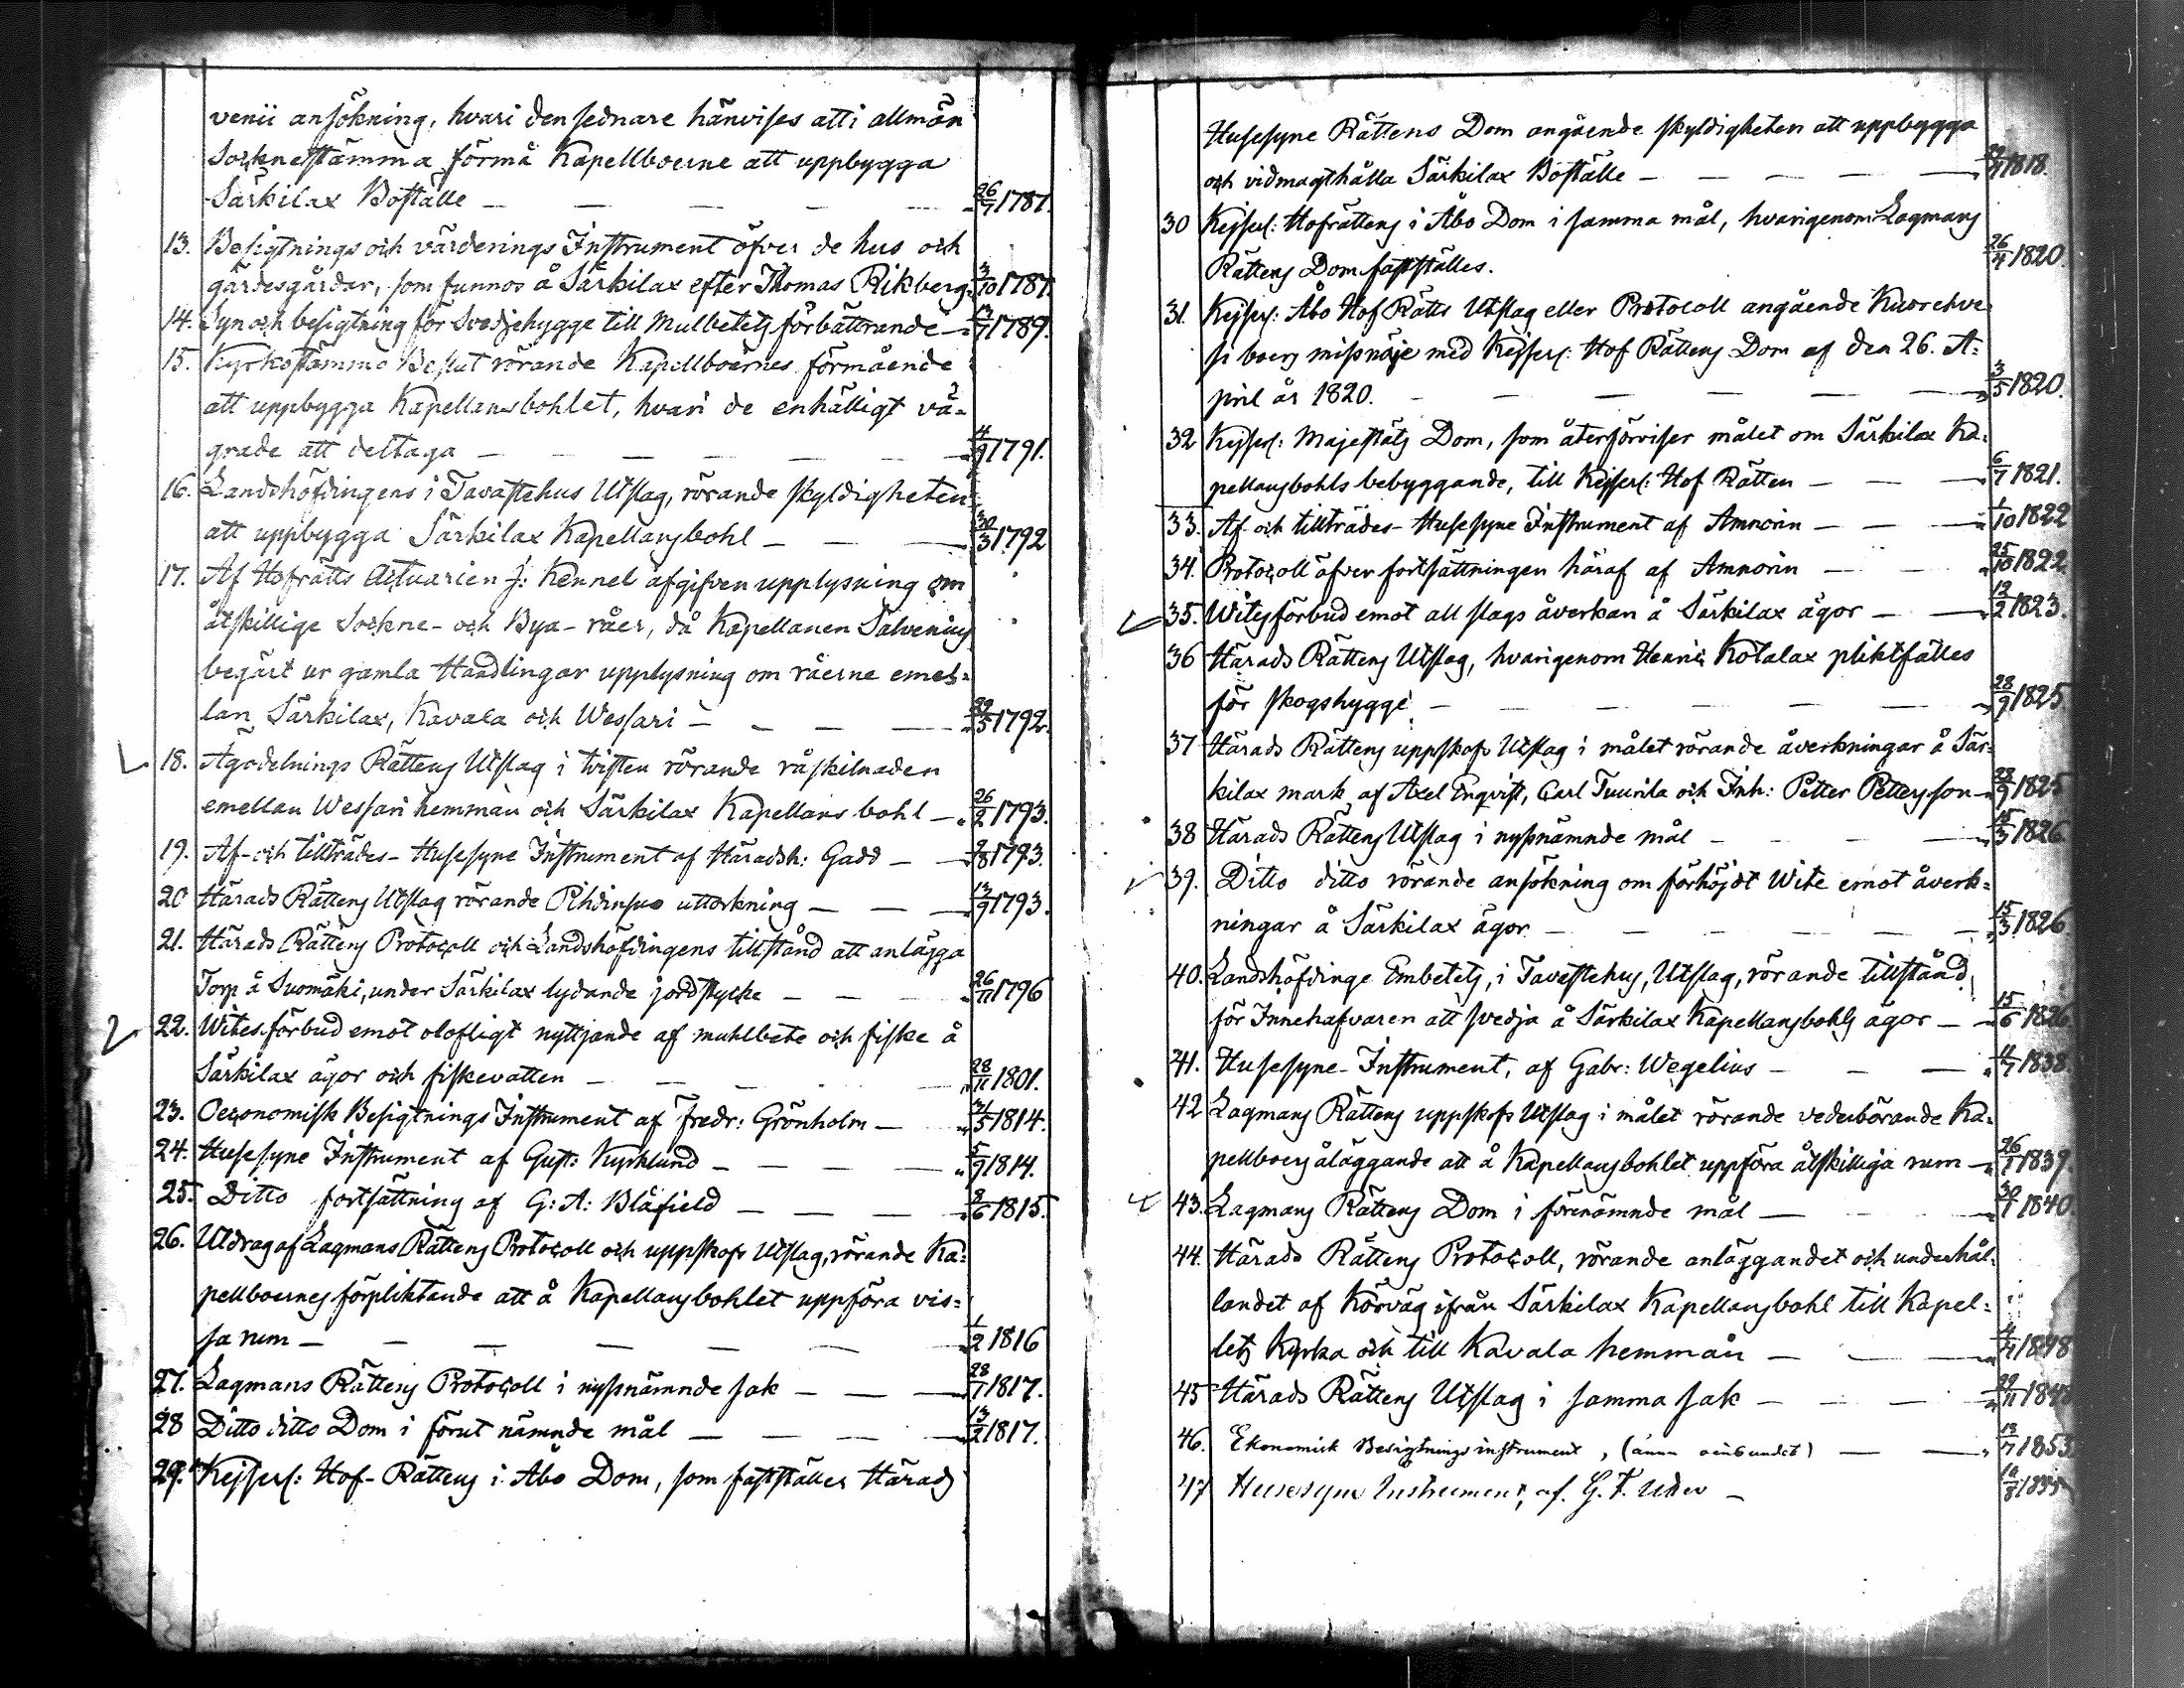 venii ansökning, hvari den sednare hänvises att i allmän
Sockne stämma förmå Kapellboerne att uppbygga
Särkilax Boställe — — — — — 26/7 1787.
13. Besigtnings och värderings Instrument öfver de hus och
gärdesgårdar, som funnos å Särkilax efter Thomas Rikberg. 3/10 1787.
14. Syn och besigtning för Svedjehygge till Mulbetets förbättrande — 1789.
15. Kyrkostämmo Beslut rörande Kapellboernes förmående
att uppbygga Kapellansbohlet, hvari de enhälligt vä-
grade att deltaga — — — — — 4/9 1791.
16. Landshöfdingens i Tavastehus Utslag, rörande skyldigheten
att uppbygga Särkilax Kapellansbohl — — — 30/3 1792
17. Af Hofrätts Actuarien J: Kennel afgifven upplysning om
åtskillige Sockne- och Bya-råer, då Kapellanen Salvenius
begärt ur gamla Handlingar upplysning om råerne emel-
lan Särkilax, Kavala och Wessari — — — 29/5 1792.
18. Ägodelnings Rättens Utslag i tvisten rörande råskilnaden
emellan Wessari hemman och Särkilax Kapellans bohl — 26/2 1793.
19. Af- och tillträdes- Husesyne Instrument af Häradsh: Gadd — 1793.
20 Härads Rättens Utslag rörande Pihdinsuo uttorkning — — 13/9 1793.
21. Härads Rättens Protocoll och Landshöfdingens tillstånd att anlägga
Torp å Suomäki, under Särkilax lydande jordstycke — — 26/11 1796
22. Wites förbud emot olofligt nyttjande af muhlbete och fiske å
Särkilax ägor och fiskevatten — — — 28/11 1801.
23. Oeconomisk Besigtnings Instrument af Fredr: Grönholm — 31/5 1814.
24. Husesyne Instrument af Gust: Kyrklund — — — 5/9 1814.
25. Ditto fortsättning af G: A: Blåfield — — — 8/6 1815.
26. Utdrag af Lagmans Rättens Protocoll och uppskofs Utslag, rörande Ka-
pellboernes förpliktande att å Kapellansbohlet uppföra vis-
sa rum — — — — — — 1/2 1816
27. Lagmans Rättens Protocoll i nyssnämnde sak — — — 28/1 1817.
28 Ditto ditto Dom i förut nämnde mål — — — 13/2 1817.
29. Kejserl: Hof-Rättens i Åbo Dom, som fastställer Härads
Husesyne Rättens Dom angående skyldigheten att uppbygga
och vidmagthålla Särkilax Boställe — — — — 1818.
30 Kejserl: Hofrättens i Åbo Dom i samma mål, hvarigenom Lagmans
Rättens Dom fastställes. 26/4 1820.
31. Kejserl: Åbo Hof Rätts Utslag eller Protocoll angående Kuorehve-
si boers missnöje med Kejserl: Hof Rättens Dom af den 26. A-
pril år 1820. — — — — — 3/5 1820.
32 Kejserl: Majestäts Dom, som återförviser målet om Särkilax Ka-
pellansbohls bebyggande, till Kejserl: Hof Rätten — — — 6/7 1821.
33. Af- och tillträdes- Husesyne Instrument af Amnorin — — — 1/10 1822
34. Protocoll öfver fortsättningen häraf af Amnorin — — 25/10 1822.
35. Witesförbud emot all slags åverkan å Särkilax ägor — — 12/2 1823.
36 Härads Rättens Utslag, hvarigenom Henric Kotalax pliktfälles
för skogshygge — — — — — — 28/9 1825
37 Härads Rättens uppskofs Utslag i målet rörande åverkningar å Sär-
kilax mark af Axel Enqvist, Carl Tuurila och Inh: Petter Pettersson — 28/9 1825
38 Härads Rättens Utslag i nyssnämnde mål — — — 15/3 1826
39. Ditto ditto rörande ansökning om förhöjdt Wite emot åverk-
ningar å Särkilax ägor — — — — — 15/3 1826.
40. Landshöfdinge Embetets, i Tavastehus, Utslag, rörande tillstånd
för Innehafvaren att svedja å Särkilax Kapellansbohls ägor — 15/6 1826
41. Husesyne-Instrument, af Gabr: Wegelius — — — 1838
42 Lagmans Rättens uppskofs Utslag i målet rörande vederbörande Ka-
pellboers åläggande att å Kapellansbohlet uppföra åtskilliga rum — 26/1 1839.
43. Lagmans Rättens Dom i förenämnde mål — — — 1840.
44. Härads Rättens Protocoll, rörande anläggandet och underhål-
landet af Körväg ifrån Särkilax Kapellansbohl till Kapel-
lets Kyrka och till Kavala hemman — — — 1848
45 Härads Rättens Utslag i samma sak — — — 29/11 1848
46. Ekonomisk Besigtningsinstrument, (ännu oinbundet) — — 1853
47 Husesyne Instrument, af G. F. —